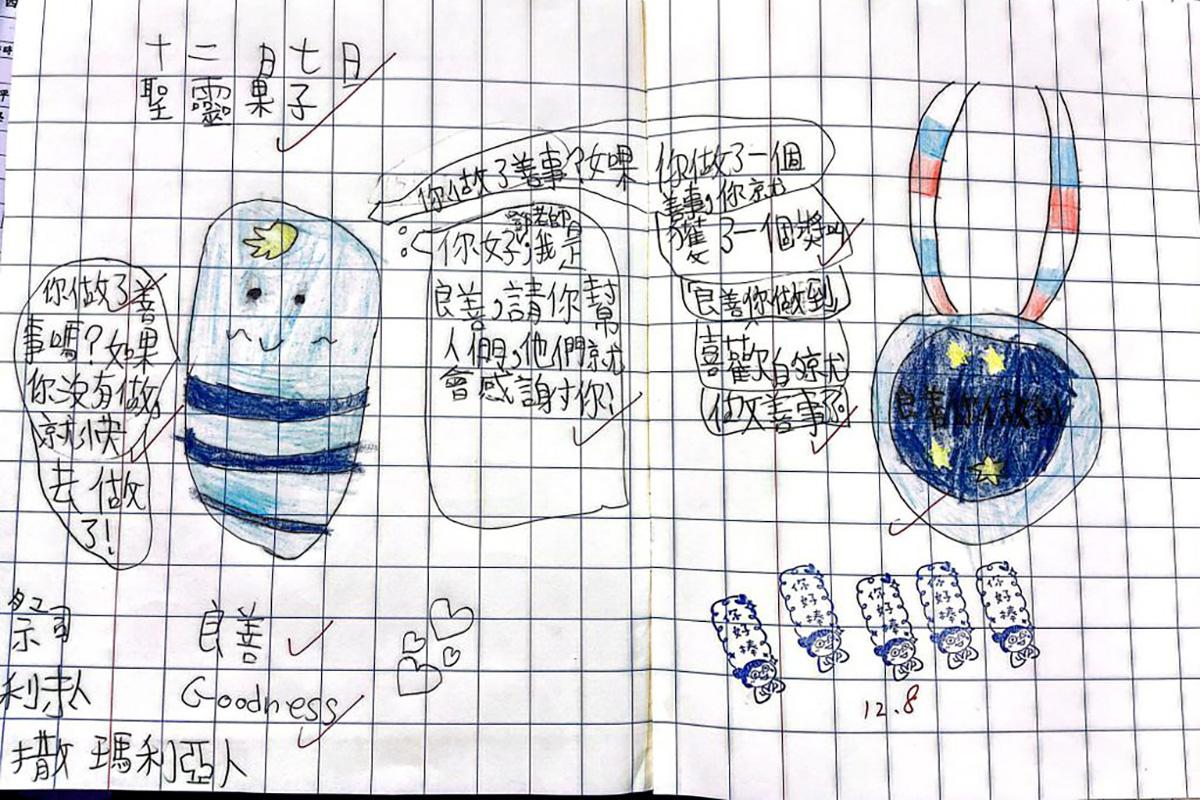 十二月七日
聖靈果子
你做了善
事嗎？如果
你沒有做，
就快
去做
了！
你做了善事？如果
你好，我是
良善，請你幫
人們，他們就
會感謝你！
你做了一個
善事，你就
獲了一個獎
良善你做到
喜歡自
做善事
良善你做到
祭司
利未人
撒瑪利亞人
良善
Goodness
你好棒
你好棒
你好棒
你好棒
你好棒
12.8